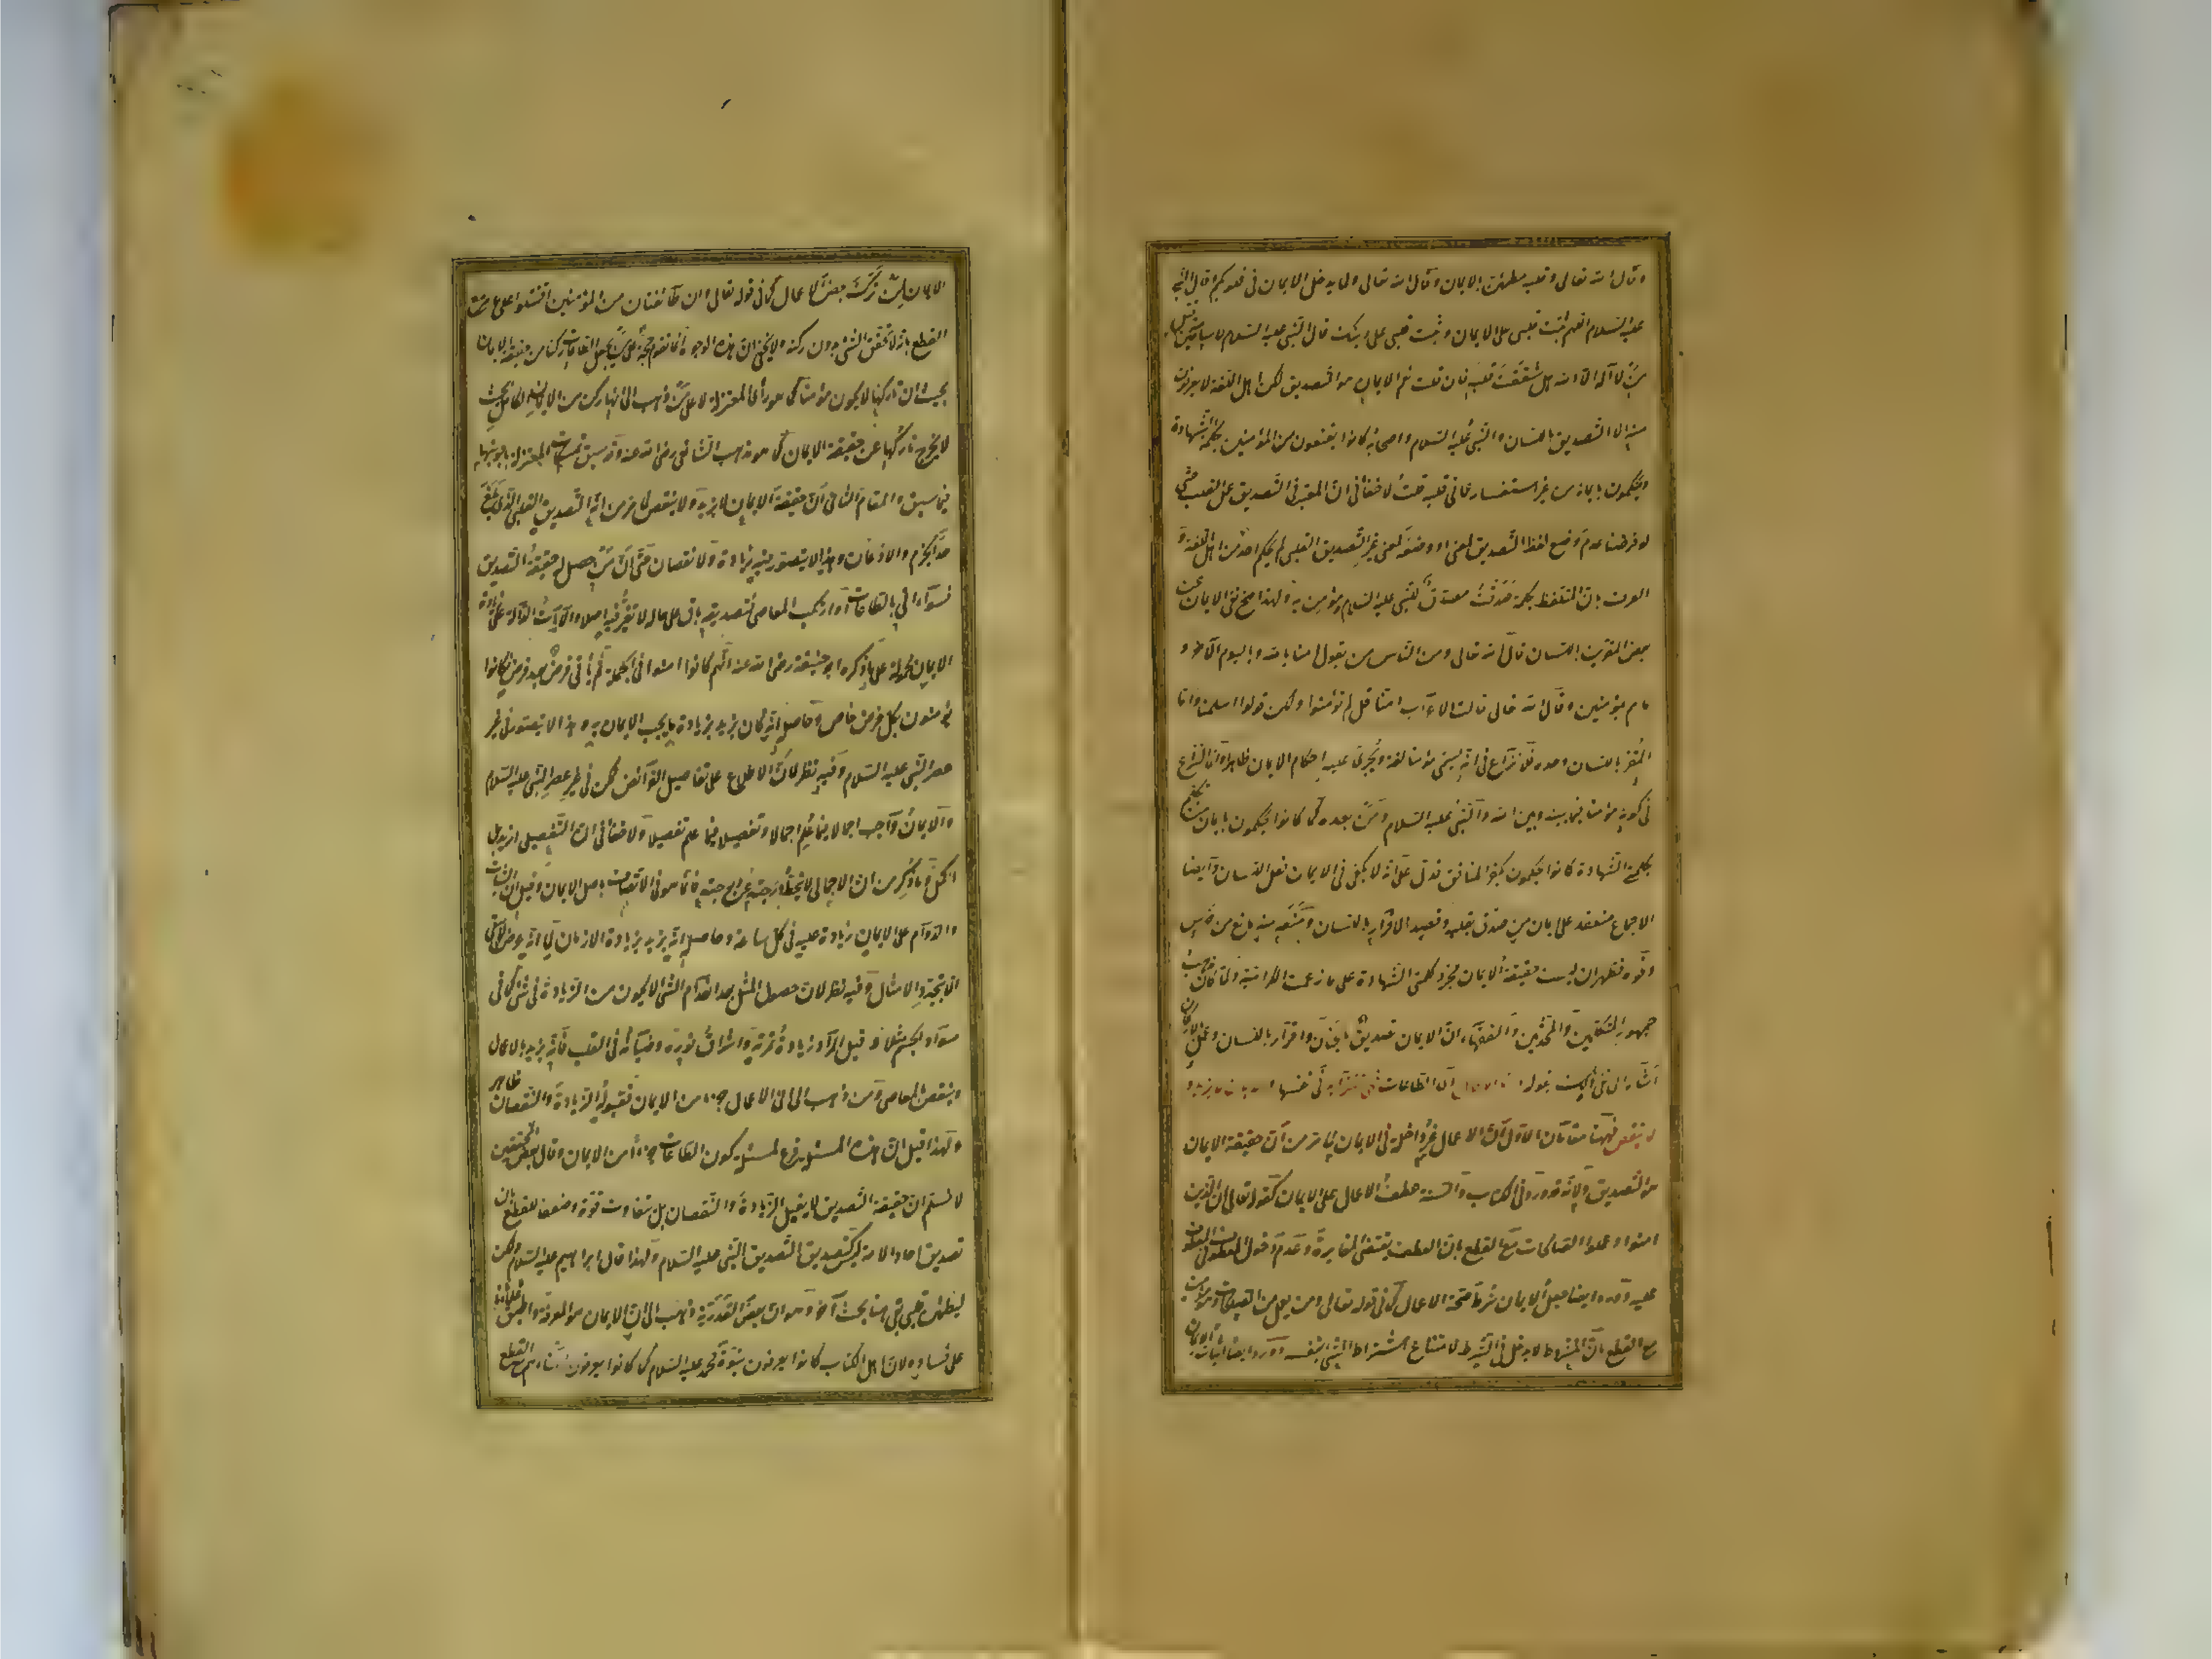 وقال الله تعالى وقلبه مطمئن بالايمان وقال الله تعالى ولما يدخل الايمان في قلوبكم وقال النبي
عليه السلام اللهم ثبت قلبي على الايمان وثبت قلبي على دينك قال النبي عليه السلام لاسامة حين قتل
من قال لا اله الا الله هل شققت قلبه فان قلت نعم الايمان هو التصديق لكن اهل اللغة لا يعرفون
منه الا التصديق باللسان والنبي عليه السلام واصحابه كانوا يقنعون من المؤمنين بكلمة الشهادة
ويحكمون بايمانه من غير استفسار عما في قلبه قلت لا خفاء في ان المعتبر في التصديق عمل القلب حتى
لو فرضنا عدم وضع لفظ التصديق لمعنى او وضعه لمعنى غير التصديق القلبي لم يحكم احد من اهل اللغة و
العرف بان المتلفظ بكلمة صدقت مصدق للنبي عليه السلام ومؤمن به ولهذا صح نفي الايمان عن
بعض المقرين باللسان قال الله تعالى ومن الناس من يقول امنا بالله وباليوم الآخر و
ما هم بمؤمنين وقال الله تعالى قالت الاعراب امنا قل لم تؤمنوا ولكن قولوا اسلمنا واما
المقر باللسان وحده فلا نزاع في انه يسمى مؤمنا لغة ويجري عليه احكام الايمان ظاهرا وانما النزاع
في كونه مؤمنا فيما بينه وبين الله والنبي عليه السلام ومن بعده كما كانوا يحكمون بايمان من تكلم
بكلمة الشهادة كانوا يحكمون بكفر المنافق فدل على انه لا يكفي في الايمان فعل اللسان وايضا
الاجماع منعقد على ايمان من صدق بقلبه وقصد الاقرار باللسان ومنعه منه مانع من خرس
ونحوه فظهر ان ليست حقيقة الايمان مجرد كلمتي الشهادة على ما زعمت الكرامية ولما كان مذهب
جمهور المتكلمين والمحدثين والفقهاء ان الايمان تصديق بالجنان واقرار باللسان وعمل بالاركان
اشار الى نفي ذلك بقوله فاما الاعمال اي الطاعات فهي تتزايد في نفسها والايمان لا يزيد و
لا ينقص فههنا مقامان الاول ان الاعمال غير داخلة في الايمان لما مر من ان حقيقة الايمان
هو التصديق ولانه قد ورد في الكتاب والسنة عطف الاعمال على الايمان كقوله تعالى ان الذين
امنوا وعملوا الصالحات مع القطع بان العطف يقتضي المغايرة وعدم دخول المعطوف في المعطوف
عليه وورد ايضا جعل الايمان شرط صحة الاعمال كما في قوله تعالى ومن يعمل من الصالحات وهو مؤمن
مع القطع بان المشروط لا يدخل في الشرط لامتناع اشتراط الشئ بنفسه وورد ايضا اثبات الايمان
الايمان لمن ترك بعض الاعمال كما في قوله تعالى وان طائفتان من المؤمنين اقتتلوا على ما مر مع
القطع بانه لا تحقق الشئ بدون ركنه ولا يخفى ان هذه الوجوه انما تقوم حجة على من يجعل الطاعات ركنا من حقيقة الايمان
بحيث ان تاركها لا يكون مؤمنا كما هو رأي المعتزلة لا على من ذهب الى انها ركن من الايمان الكامل بحيث
لا يخرج تاركها عن حقيقة الايمان كما هو مذهب الشافعي رضي الله عنه وقد سبق تمسكات المعتزلة باجوبتها
فيما سبق والمقام الثاني ان حقيقة الايمان لا يزيد ولا ينقص لما مر من انه التصديق القلبي الذي بلغ
حد الجزم والاذعان وهذا لا يتصور فيه زيادة ولا نقصان حتى ان من حصل له حقيقة التصديق
فسواء اتى بالطاعات او ارتكب المعاصي فتصديقه باق على حاله لا تغير فيه اصلا والآيات الدالة على زيادة
الايمان محمولة على ما ذكره ابو حنيفة رضي الله عنه انهم كانوا امنوا في الجملة ثم يأتي فرض بعد فرض وكانوا
يؤمنون بكل فرض خاص وحاصله انه كان يزيد بزيادة ما يجب الايمان به وهذا لا يتصور في غير
عصر النبي عليه السلام وفيه نظر لان الاطلاع على تفاصيل الفرائض ممكن في غير عصر النبي عليه السلام
والايمان واجب اجمالا فيما علم اجمالا وتفصيلا فيما علم تفصيلا ولا خفاء في ان التفصيلي ازيد بل
اكمل وما ذكر من ان الاجمالي لا ينحط درجته عن درجته فانما هو في الاتصاف باصل الايمان وقيل ان الثبات
والدوام على الايمان زيادة عليه في كل ساعة وحاصله انه يزيد بزيادة الازمان لما انه عرض لا يبقى
الا بتجدد الامثال وفيه نظر لان حصول المثل بعد انعدام الشئ لا يكون من الزيادة في شئ كما في
سواد الجسم مثلا وقيل المراد زيادة ثمرته واشراق نوره وضيائه في القلب فانه يزيد بالاعمال
وينقص بالمعاصي ومن ذهب الى ان الاعمال جزء من الايمان فقبوله الزيادة والنقصان ظاهر
ولهذا قيل ان هذه المسئلة فرع لمسئلة كون الطاعات جزءا من الايمان وقال بعض المحققين
لا نسلم ان حقيقة التصديق لا يقبل الزيادة والنقصان بل تتفاوت قوة وضعفا للقطع بان
تصديق احاد الامة ليس كتصديق النبي عليه السلام ولهذا قال ابراهيم عليه السلام ولكن
ليطمئن قلبي بقي هنا بحث آخر وهو ان بعض القدرية ذهب الى ان الايمان هو المعرفة واطبق علماؤنا
على فساده لان اهل الكتاب كانوا يعرفون نبوة محمد عليه السلام كما كانوا يعرفون ابناءهم مع القطع